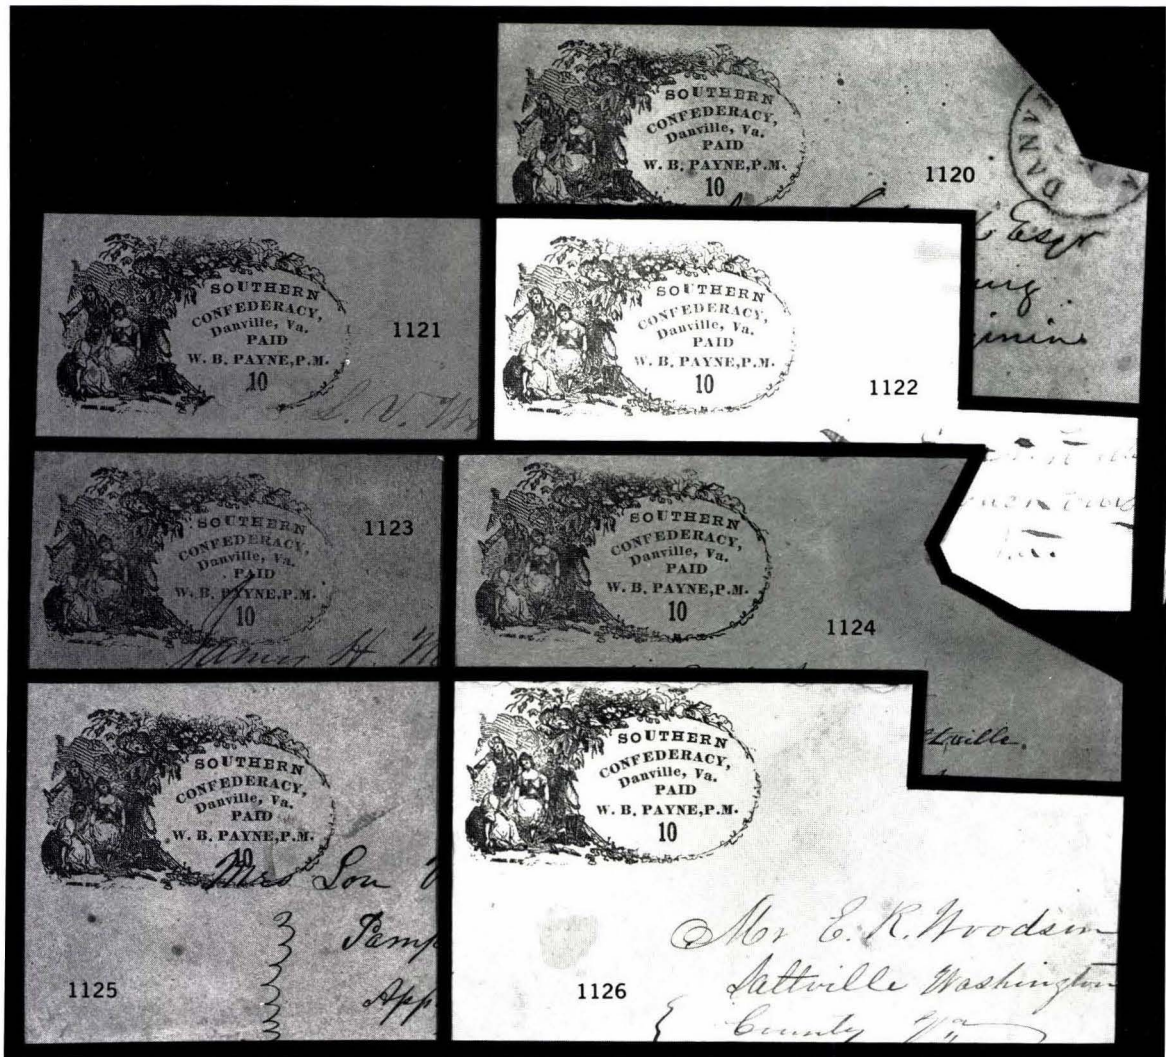 SOUTHERN
CONFEDERACY,
Danville, Va.
PAID
W. B. PAYNE, P.M.
10
1120
DANV
Esqr
SOUTHERN
CONFEDERACY,
Danville, Va.
PAID
W. B. PAYNE, P.M.
10
1121
S. V.
SOUTHERN
CONFEDERACY,
Danville, Va.
PAID
W. B. PAYNE, P.M.
10
1122
SOUTHERN
CONFEDERACY,
Danville, Va.
PAID
W. B. PAYNE, P.M.
10
1123
James H. M
SOUTHERN
CONFEDERACY,
Danville, Va.
PAID
W. B. PAYNE, P.M.
10
1124
ville.
SOUTHERN
CONFEDERACY,
Danville, Va.
PAID
W. B. PAYNE, P.M.
10
Mrs Lou
Pamp
App
1125
SOUTHERN
CONFEDERACY,
Danville, Va.
PAID
W. B. PAYNE, P.M.
10
Mr E. R. Woodson
Saltville Washington
County Va
1126